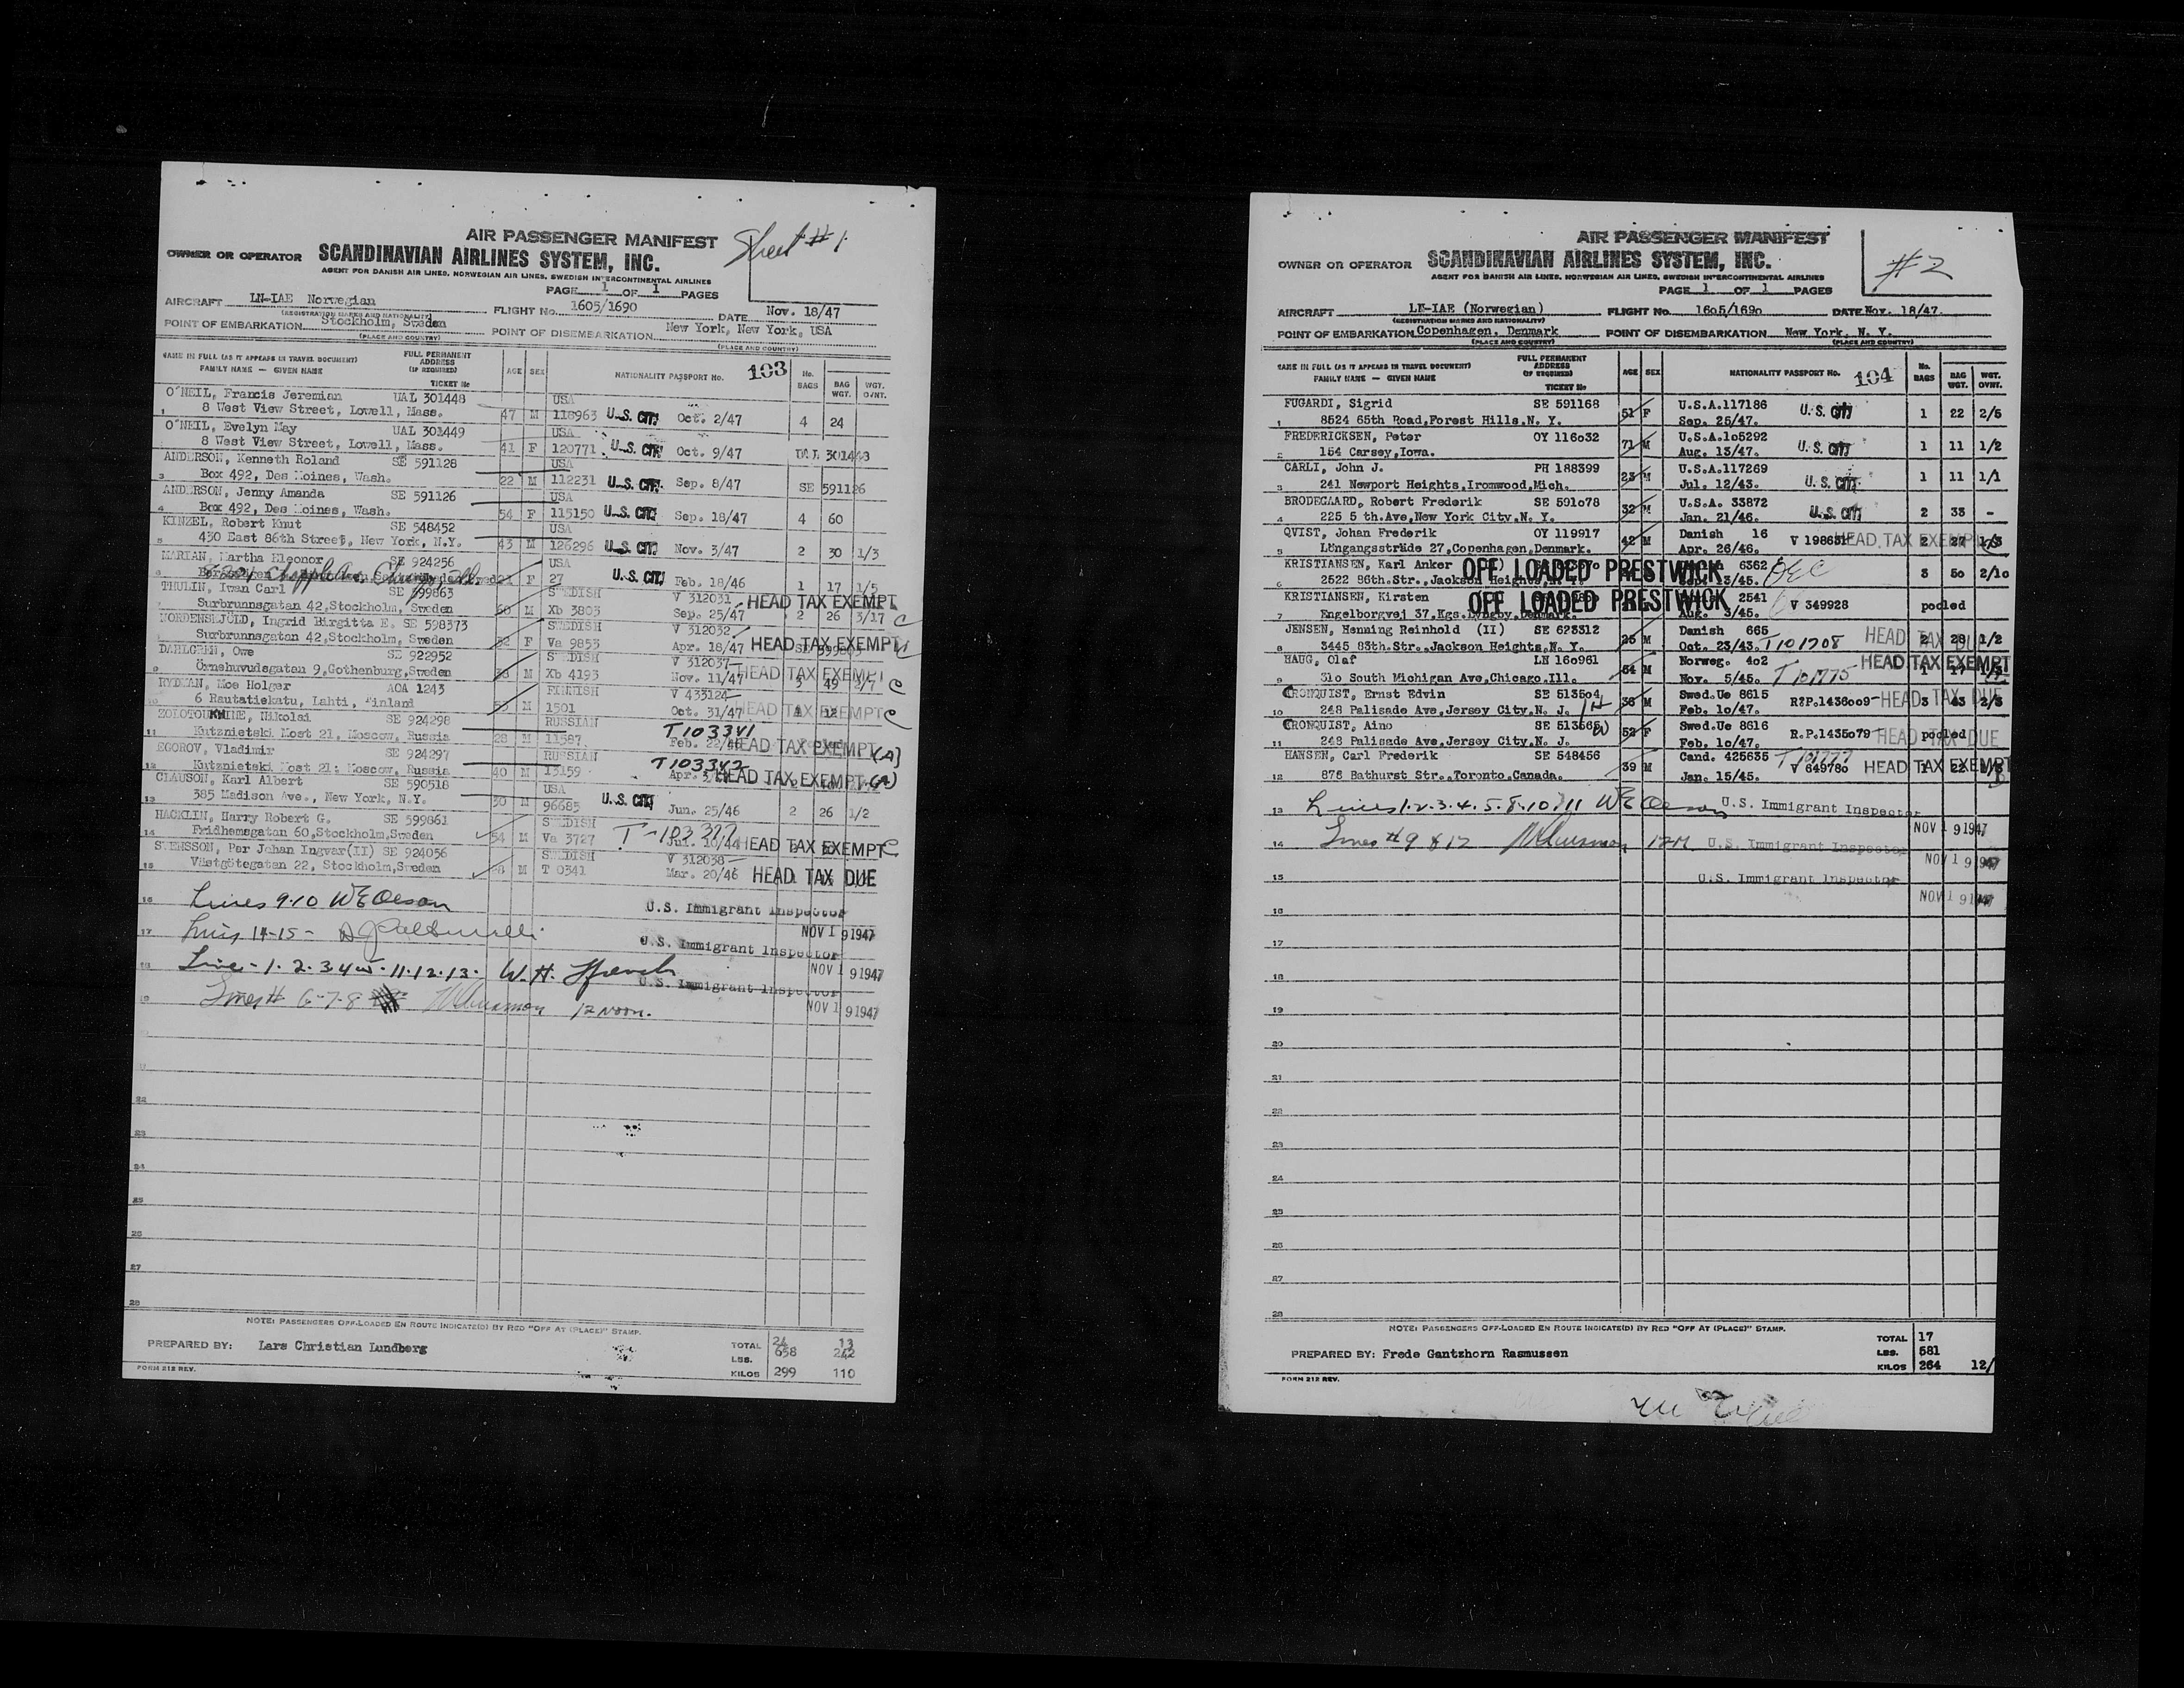 AIR PASSENGER MANIFEST
Sheet #1
OWNER OR OPERATOR SCANDINAVIAN AIRLINES SYSTEM, INC.
AGENT FOR DANISH AIR LINES, NORWEGIAN AIR LINES, SWEDISH INTERCONTINENTAL AIRLINES
PAGE 1 OF 1 PAGES
AIRCRAFT LN-IAE Norwegian FLIGHT No. 1605/1690 DATE Nov. 18/47
(REGISTRATION MARKS AND NATIONALITY)
POINT OF EMBARKATION Stockholm, Sweden POINT OF DISEMBARKATION New York, New York, USA
(PLACE AND COUNTRY) (PLACE AND COUNTRY)
NAME IN FULL (AS IT APPEARS IN TRAVEL DOCUMENT) FULL PERMANENT ADDRESS (IF REQUIRED)
FAMILY NAME — GIVEN NAME TICKET No AGE SEX NATIONALITY PASSPORT No. 103 No. BAGS BAG WGT. WGT. OVNT.
O'NEIL, Francis Jeremian UAL 301448 USA
1 8 West View Street, Lowell, Mass. 47 M 118963 U.S. CIT. Oct. 2/47 4 24
O'NEIL, Evelyn May UAL 301449 USA
8 West View Street, Lowell, Mass. 41 F 120771 U.S. CIT. Oct. 9/47 UAL 301448
ANDERSON, Kenneth Roland SE 591128 USA
3 Box 492, Des Moines, Wash. 22 M 112231 U.S. CIT. Sep. 8/47 SE 591126
ANDERSON, Jenny Amanda SE 591126 USA
4 Box 492, Des Moines, Wash. 54 F 115150 U.S. CIT. Sep. 18/47 4 60
KINZEL, Robert Knut SE 548452 USA
5 430 East 86th Street, New York, N.Y. 43 M 126296 U.S. CIT. Nov. 3/47 2 30 1/3
MARIAN, Martha Eleonor SE 924256 USA
6 Chicago, Ill. F 27 U.S. CIT. Feb. 18/46 1 17 1/5
THULIN, Iwan Carl SE 599863 SWEDISH V 312031
7 Surbrunnsgatan 42,Stockholm, Sweden 60 M Xb 3803 Sep. 25/47 HEAD TAX EXEMPT 2 26 3/17 C
NORDENSKJOLD, Ingrid Birgitta E. SE 598373 SWEDISH V 312032
Surbrunnsgatan 42,Stockholm, Sweden F Va 9853 Apr. 18/47 HEAD TAX EXEMPT
DAHLGREN, Owe SE 922952 SWEDISH V 312037
9 Örnehuvudsgatan 9,Gothenburg,Sweden M Xb 4193 Nov. 11/47 HEAD TAX EXEMPT 3 49 2/7 C
RYDMAN, Moe Holger AOA 1243 FINNISH V 433124
10 6 Rautatiekatu, Lahti, Finland M 1501 Oct. 31/47 HEAD TAX EXEMPT 12 C
ZOLOTOUKHINE, Nikolai SE 924298 RUSSIAN T103341
11 Kutznietski Most 21, Moscow, Russia 28 M 11587 Feb. 22/46 HEAD TAX EXEMPT (A)
EGOROV, Vladimir SE 924297 RUSSIAN T103342
12 Kutznietski Most 21, Moscow, Russia 40 M 13159 Apr. HEAD TAX EXEMPT (A)
CLAUSON, Karl Albert SE 590518 USA
13 385 Madison Ave., New York, N.Y. 30 M 96685 U.S. CIT. Jun. 25/46 2 26 1/2
HACKLIN, Harry Robert G. SE 599861 SWEDISH T-103327
14 Fridhemsgatan 60,Stockholm,Sweden 54 M Va 3727 Jul. 10/44 HEAD TAX EXEMPT C
SVENSSON, Per Johan Ingvar(II) SE 924056 SWEDISH V 312038
15 Västgötegatan 22, Stockholm,Sweden M T 0341 Mar. 20/46 HEAD TAX DUE
16 Lines 9-10 W E Olson U.S. Immigrant Inspector
17 Lines 14-15 - NOV 19 1947
U.S. Immigrant Inspector
18 Line - 1. 2. 3. 4. 5. 11. 12. 13. W.H. French NOV 19 1947
U.S. Immigrant Inspector
19 Lines # 6-7-8 12 Noon. NOV 19 1947
22
23
24
25
26
27
28
NOTE: PASSENGERS OFF-LOADED EN ROUTE INDICATE(D) BY RED "OFF AT (PLACE)" STAMP.
PREPARED BY: Lars Christian Lundberg TOTAL 24 13
LBS. 658 242
KILOS 299 110
FORM 212 REV.
AIR PASSENGER MANIFEST
#2
OWNER OR OPERATOR SCANDINAVIAN AIRLINES SYSTEM, INC.
AGENT FOR DANISH AIR LINES, NORWEGIAN AIR LINES, SWEDISH INTERCONTINENTAL AIRLINES
PAGE 1 OF 1 PAGES
AIRCRAFT LN-IAE (Norwegian) FLIGHT No. 16o5/169o DATE Nov. 18/47.
(REGISTRATION MARKS AND NATIONALITY)
POINT OF EMBARKATION Copenhagen, Denmark POINT OF DISEMBARKATION New York, N. Y.
(PLACE AND COUNTRY) (PLACE AND COUNTRY)
NAME IN FULL (AS IT APPEARS IN TRAVEL DOCUMENT) FULL PERMANENT ADDRESS (IF REQUIRED)
FAMILY NAME — GIVEN NAME TICKET No AGE SEX NATIONALITY PASSPORT No. 104 No. BAGS BAG WGT. WGT. OVNT.
FUGARDI, Sigrid SE 591168 U.S.A.117186
1 8524 65th Road,Forest Hills,N. Y. 51 F Sep. 25/47. U.S. CIT 1 22 2/5
FREDERICKSEN, Peter OY 116o32 U.S.A.1o5292
2 154 Carsey,Iowa. 71 M Aug. 13/47. U.S. CIT 1 11 1/2
CARLI, John J. PH 188399 U.S.A.117269
3 241 Newport Heights,Ironwood,Mich. 23 M Jul. 12/43. U.S. CIT. 1 11 1/1
BRODEGAARD, Robert Frederik SE 591o78 U.S.A. 33872
4 225 5 th.Ave,New York City,N. Y. 32 M Jan. 21/46. U.S. CIT 2 33 -
QVIST, Johan Frederik OY 119917 Danish 16
5 Löngangssträde 27,Copenhagen,Denmark. 42 M Apr. 26/46. V 198631 HEAD TAX EXEMPT 2 27 1/3
KRISTIANSEN, Karl Anker OFF LOADED PRESTWICK 6362
6 2522 86th.Str.,Jackson Heights, 3/45. 3 5o 2/1o
KRISTIANSEN, Kirsten OFF LOADED PRESTWICK 2541
7 Engelborgvej 37,Kgs.Lyngby,Denmark. Aug. 3/45. V 349928 pooled
JENSEN, Henning Reinhold (II) SE 623312 Danish 665
8 3445 83th.Str.,Jackson Heights,N. Y. 25 M Oct. 23/43. T101708 HEAD TAX DUE 2 28 1/2
HAUG, Olaf LN 16o961 Norweg. 4o2
9 31o South Michigan Ave,Chicago.Ill. 54 M Nov. 5/45. T101775 HEAD TAX EXEMPT 1 17
CRONQUIST, Ernst Edvin SE 5135o4 Swed.Ue 8615
10 248 Palisade Ave,Jersey City,N. J. 36 M Feb. 1o/47. R?P.1436oo9 HEAD TAX DUE 3 43 2/3
CRONQUIST, Aino SE 513565 Swed.Ue 8616
11 248 Palisade Ave,Jersey City,N. J. 52 F Feb. 1o/47. R.P.1435o79 HEAD TAX DUE pooled
HANSEN, Carl Frederik SE 548456 Cand. 425635 T101777
12 876 Bathurst Str.,Toronto,Canada. 39 M Jan. 15/45. V 64978o HEAD TAX EXEMPT 1 22
13 Lines 1.2.3.4.5.8.10.11 W E Olson U.S. Immigrant Inspector
NOV 19 1947
14 Lines #9 & 12 12M U.S. Immigrant Inspector
NOV 19 1947
15 U.S. Immigrant Inspector
NOV 19 1947
16
17
18
19
20
21
22
23
24
25
26
27
28
NOTE: PASSENGERS OFF-LOADED EN ROUTE INDICATE(D) BY RED "OFF AT (PLACE)" STAMP.
PREPARED BY: Frede Gantzhorn Rasmussen TOTAL 17
LBS. 581
KILOS 264 12/
FORM 212 REV.